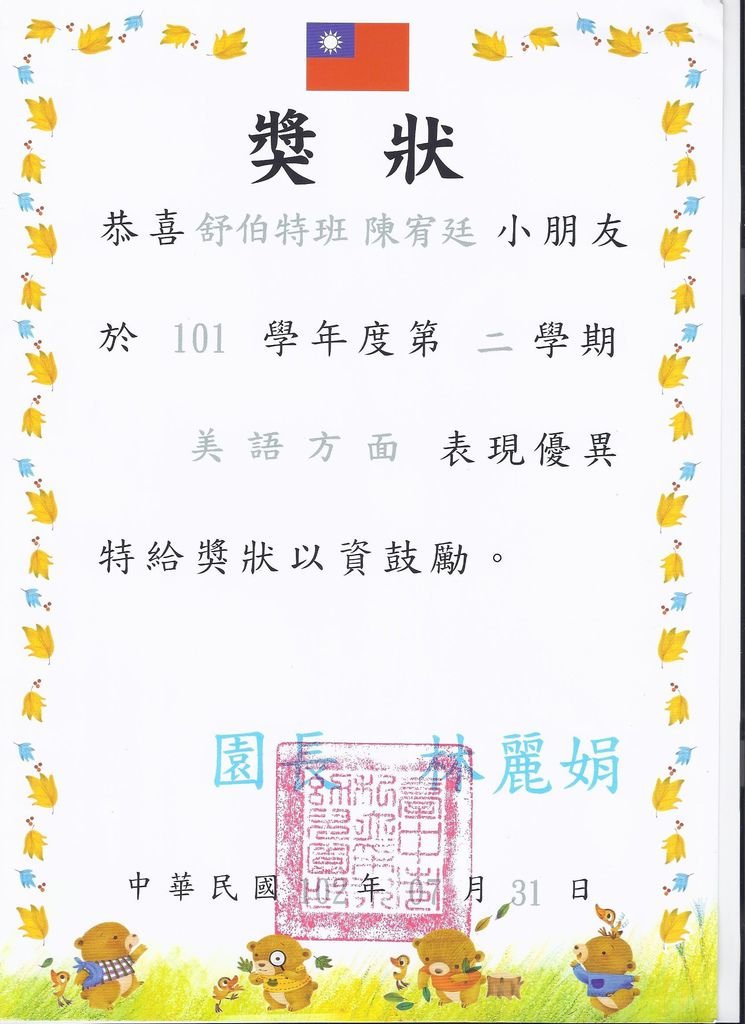 獎狀
恭喜舒伯特班 陳宥廷 小朋友
於 101 學年度第 二 學期
美語方面 表現優異
特給獎狀以資鼓勵。
園長 林麗娟
中華民國 102 年 07 月 31 日